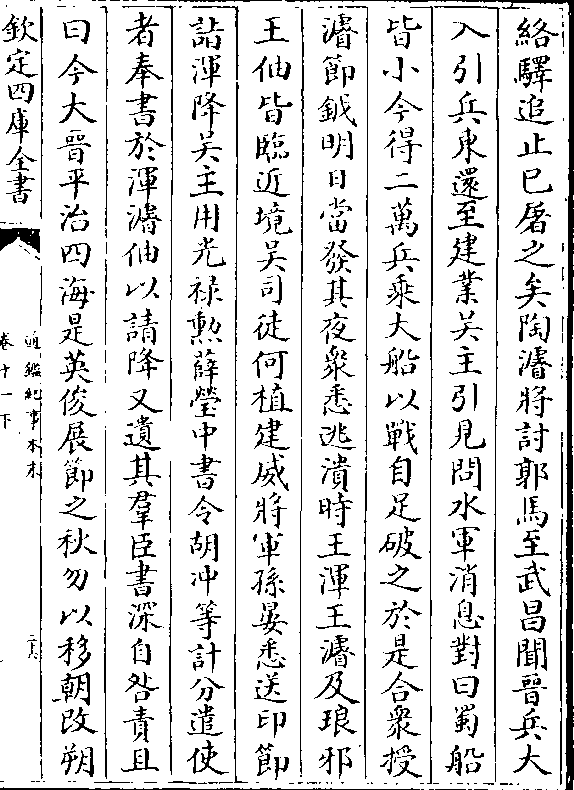 絡驛追止已屠之矣陶濬將討郭馬至武昌聞晉兵大
入引兵東還至建業吳主引見問水軍消息對曰蜀船
皆小今得二萬兵乘大船以戰自足破之於是合衆授
濬節鉞明日當發其夜衆悉逃潰時王渾王濬及琅邪
王伷皆臨近境吳司徒何植建威將軍孫晏悉送印節
詣渾降吳主用光祿勲薛瑩中書令胡冲等計分遣使
者奉書於渾濬伷以請降又遺其羣臣書深自咎責且
曰今大晉平治四海是英俊展節之秋勿以移朝改朔
欽定四庫全書
通鑑紀事本末
卷十一下